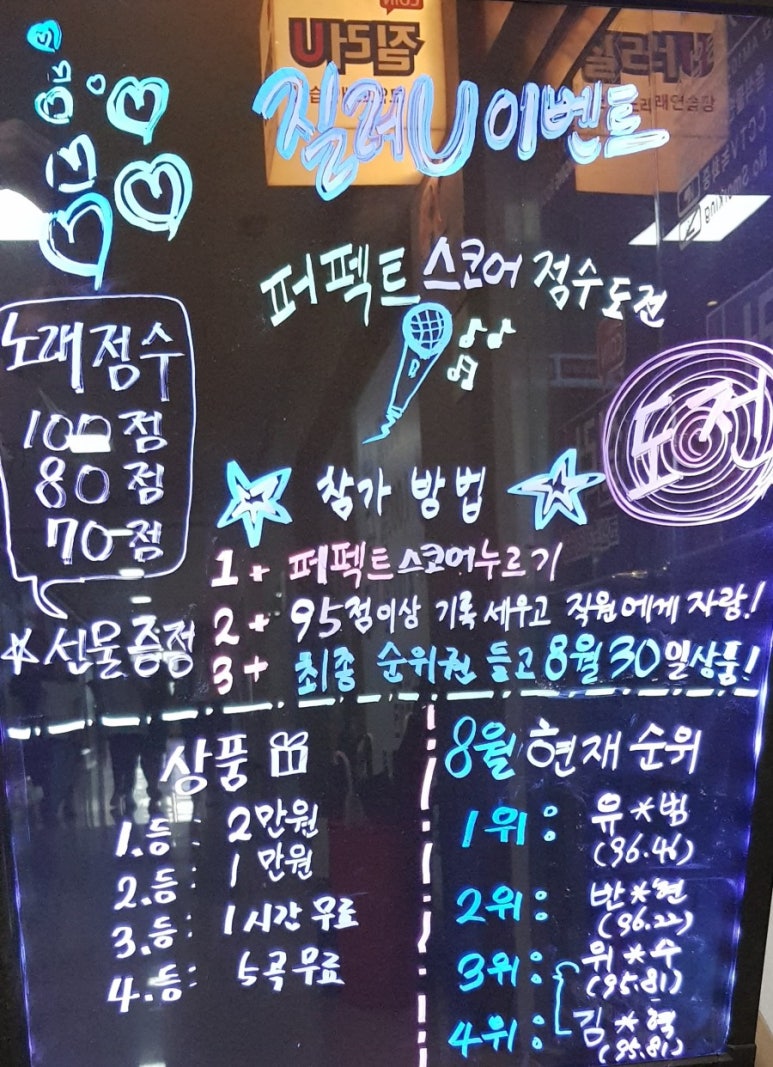 COIN
질러U
노래연습장
질러U 이벤트
퍼펙트 스코어 점수도전
노래점수
100점
80점
70점
☆ 선물증정
도전
참가 방법
1+ 퍼펙트스코어누르기
2+ 95점이상 기록 세우고 직원에게 자랑!
3+ 최종 순위권 들고 8월 30일상품!
상품
1.등: 2만원
2.등: 1만원
3.등: 1시간 무료
4.등: 5곡무료
8월 현재 순위
1위: 유*범
(96.46)
2위: 반*현
(96.22)
3위: 위*수
(95.81)
4위: 김*혁
(95.81)
CCTV
No Smoking